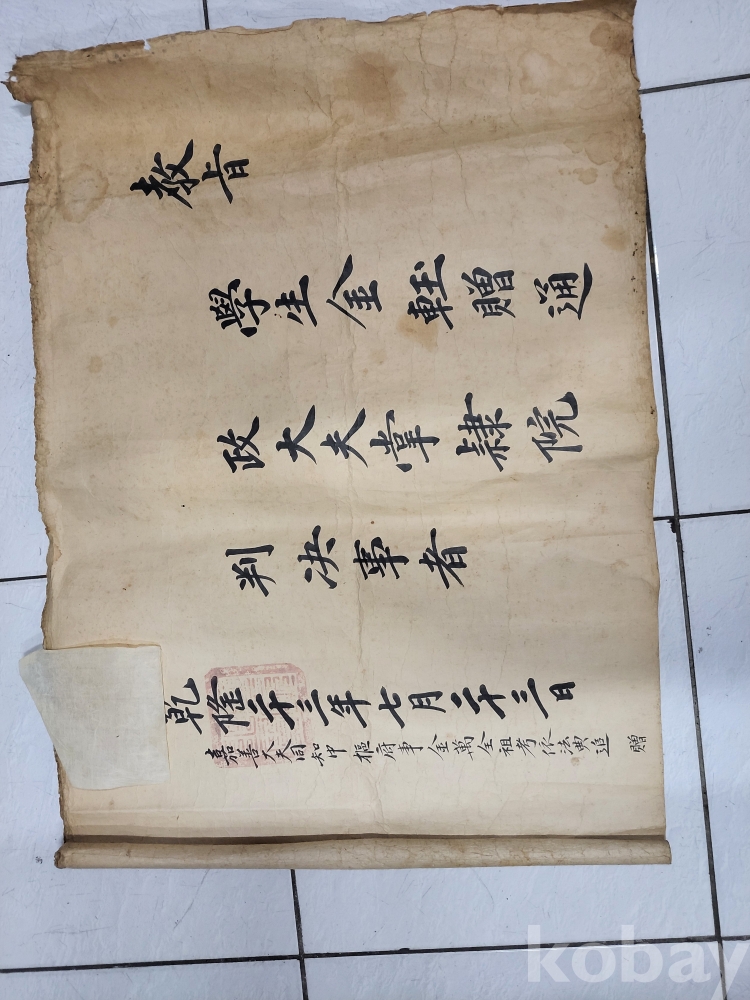 教旨
學生金輊贈通
政大夫掌隸院
判決事者
乾隆二十三年七月二十三日
嘉善大夫同知中樞府事金萬全祖考依法典追贈
kobay